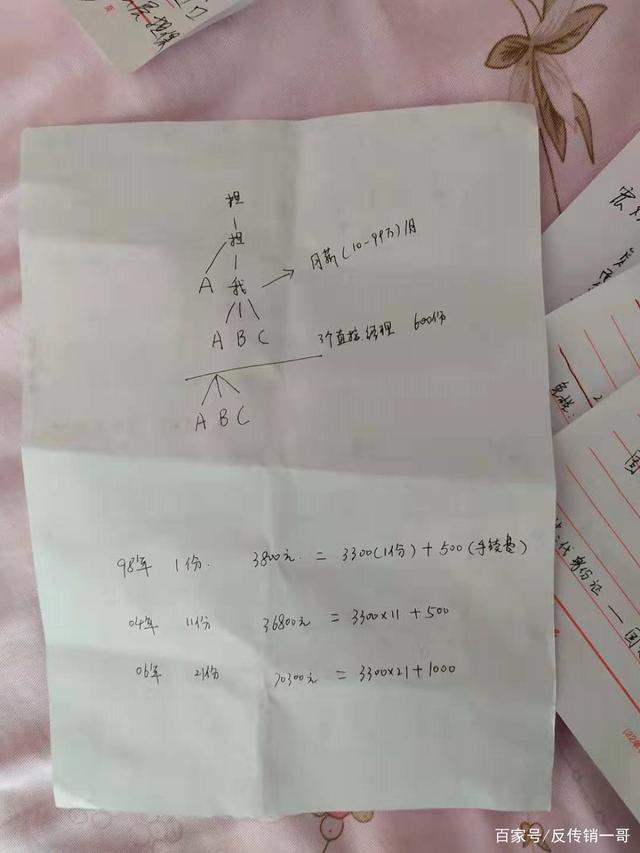 担保
担
担
A 我
月薪(10-99万)/月
A B C
3个直接经理 600份
A B C
98年 1份. 3800元. = 3300(1份)+500(手续费)
04年 11份 36800元 = 3300×11+500
06年 21份 70300元 = 3300×21+1000
代身份证 一国
百家号/反传销一哥